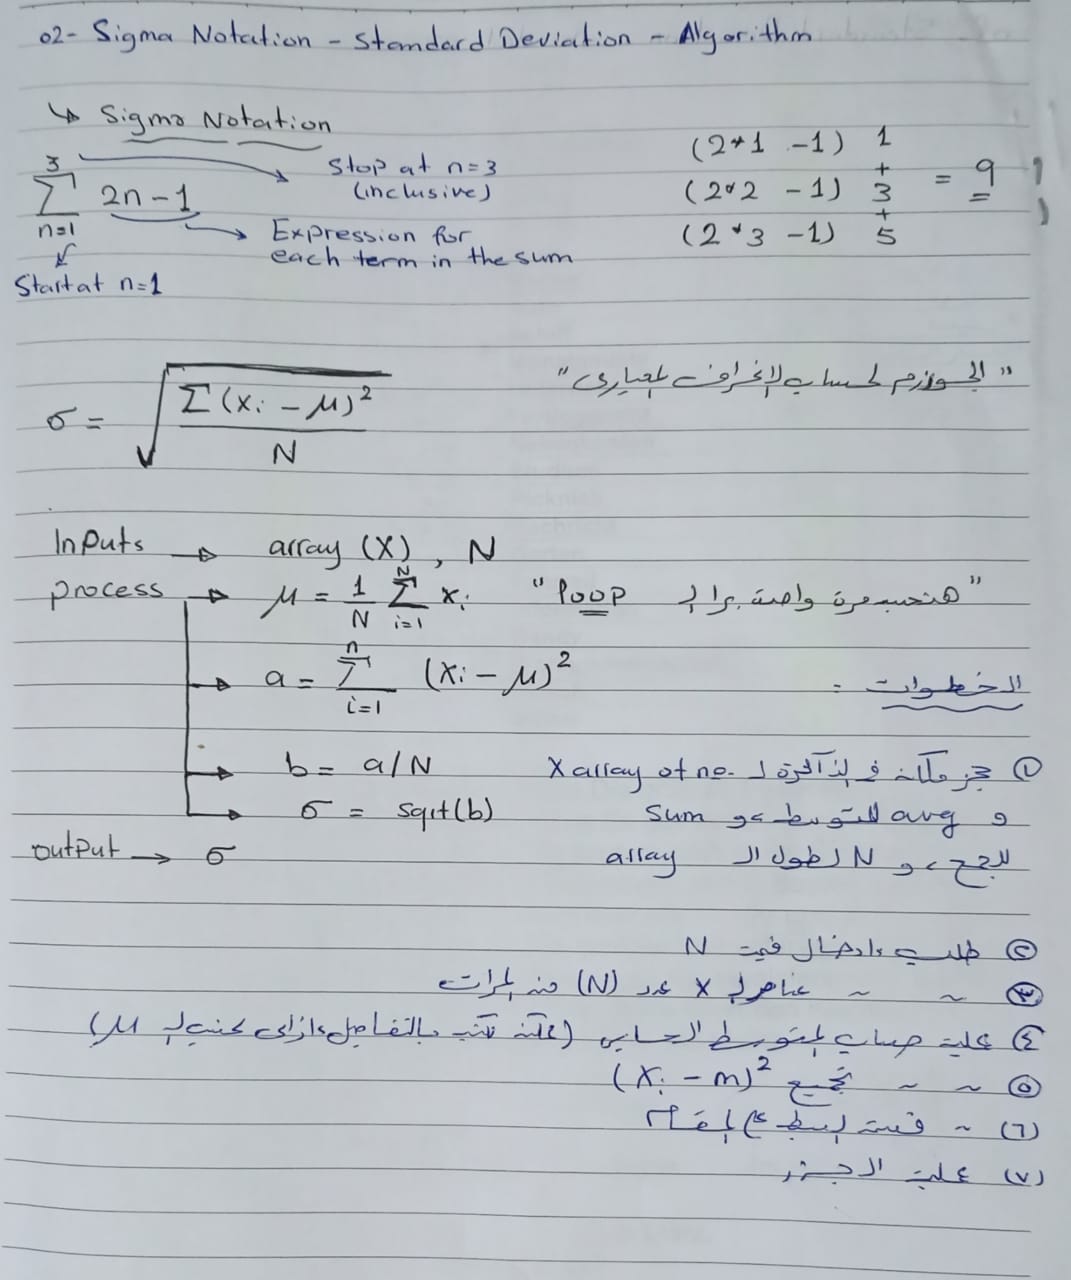 02- Sigma Notation - Standard Deviation - Algorithm
↳ Sigma Notation
3
∑ 2n-1
n=1
Start at n=1
Stop at n=3
(inclusive)
Expression for
each term in the sum
(2*1 -1) 1
+
(2*2 -1) 3 = 9
+
(2*3 -1) 5
"الخوارزم لحساب الانحراف المعيارى"
σ = √(Σ(xi - μ)² / N)
Inputs → array (X), N
process → μ = 1/N ∑ i=1 N xi "هنحسبه مرة واحدة برا الـ loop"
→ a = ∑ i=1 n (xi - μ)²
→ b = a/N
→ σ = sqrt(b)
output → σ
الخطوات :
① حجز مكان فى الذاكرة لـ X array of no.
و avg للمتوسط، و sum
للجمع، و N لطول الـ array
② طلب إدخال قيمة N
③ ~ ~ عناصر لـ X عدد (N) من المرات
٤) عملية حساب المتوسط الحسابى (ممكن تكتب بالتفاصيل إزاى تحسب لـ μ)
⑤ ~ ~ تجميع (xi - m)²
(٦) ~ قسمة البسط ع المقام
(٧) عملية الجذر